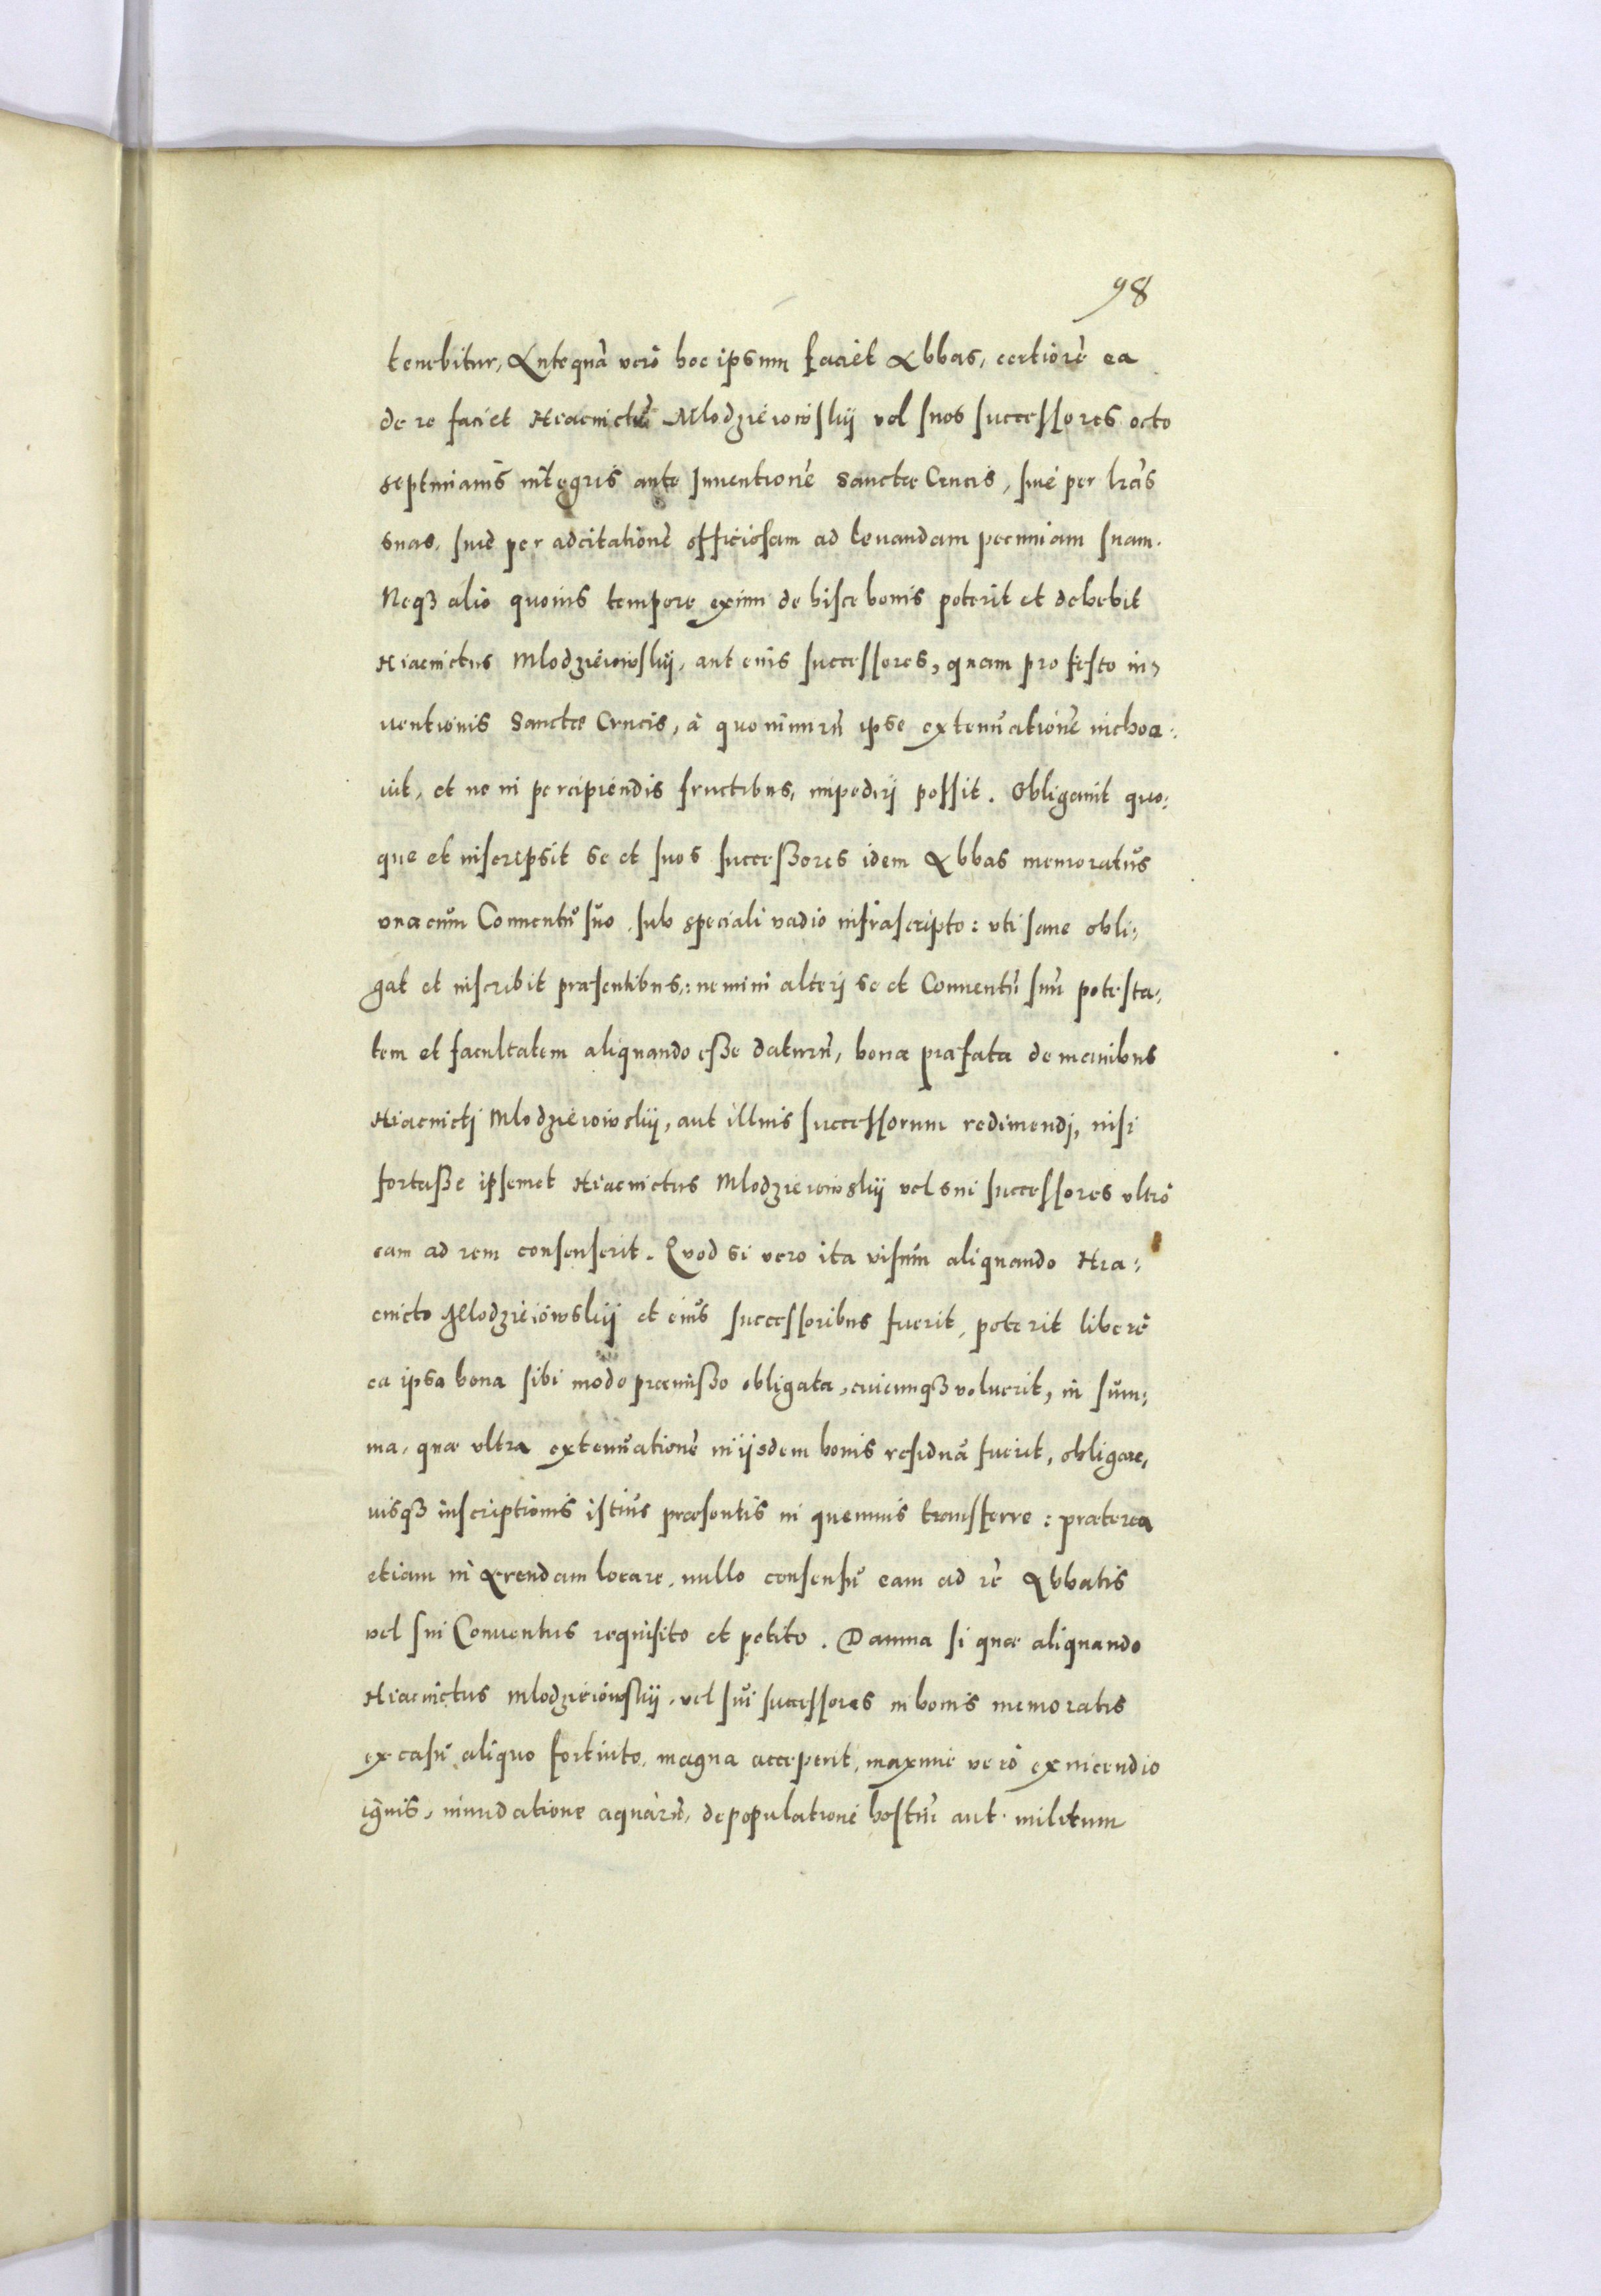 98
tenebitur, Antequā verò hoc ipsum faciet Abbas, certiorē ea
de re faciet Hiacinctū Mlodzieiowskij vel suos successores octo
septimanis integris ante Inuentionē Sanctæ Crucis, siue per lrās
suas, siue per adcitationē officiosam ad leuandam pecuniam suam.
Neqꝫ alio quouis tempore eximi de hisce bonis poterit et debebit
Hiacinctus Mlodzieiowskij, aut eius successores, quam pro festo in-
uentionis Sanctæ Crucis, à quo nimirū ipse extenuationē inchoa-
uit, et ne in percipiendis fructibus, impedirj possit. Obligauit quo-
que et inscripsit se et suos successores idem Abbas memoratus
vnacum Conuentu suo, sub speciali vadio infrascripto: vti sane obli-
gat et inscribit præsentibus: nemini alterj se et Conuentū suū potesta-
tem et facultatem aliquando esse daturū, bona præfata de manibus
Hiacinctj Mlodzieiowskij, aut illius successorum redimendj, nisi
fortasse ipsemet Hiacinctus Mlodzieiowskij vel sui successores vltrò
eam ad rem consenserit. Quod si vero ita visum aliquando Hia-
cincto Mlodzieiowskij et eius successoribus fuerit, poterit liberè
ea ipsa bona sibi modo præmisso obligata, cuicunqꝫ voluerit, in sum-
ma, quæ vltra extenuationē in ijsdem bonis residua fuerit, obligare,
iusqꝫ inscriptionis istius præsentis in quemuis transferre: præterea
etiam in Arendam locare, nullo consensu eam ad rē Abbatis
vel sui Conuentus requisito et petito. Damna si quæ aliquando
Hiacinctus Mlodzieiowskij, vel sui successores in bonis memoratis
ex casu aliquo fortuito, magna acceperit, maxime verò ex incendio
ignis, inundatione aquarū, depopulatione hostiū aut militum